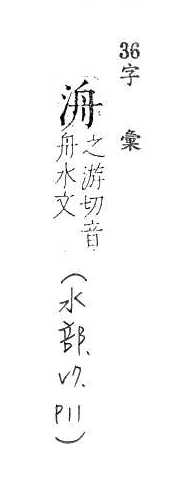 36字 彙
洀
之游切音
舟水文
(水部. V7. P11)